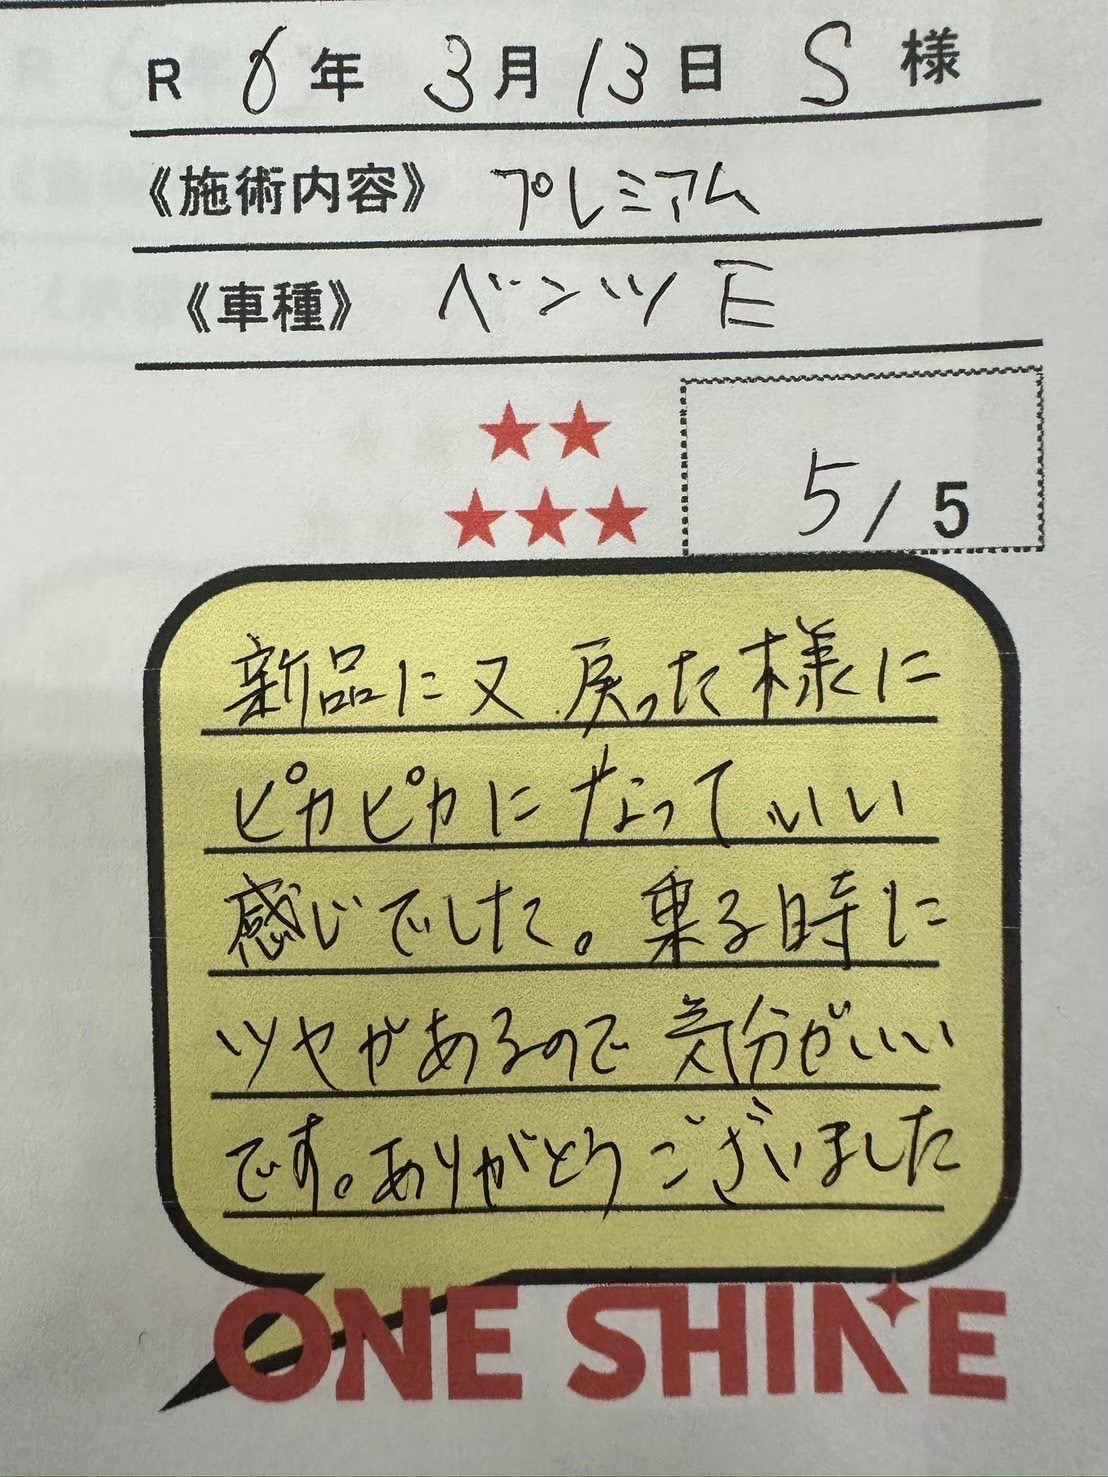 R 6年 3月 13日 S 様
《施術内容》 プレミアム
《車種》 ベンツ E
5 / 5
新品に又戻った様に
ピカピカになっていい
感じでした。乗る時に
ツヤがあるので気分がいい
です。ありがとうございました
ONE SHINE